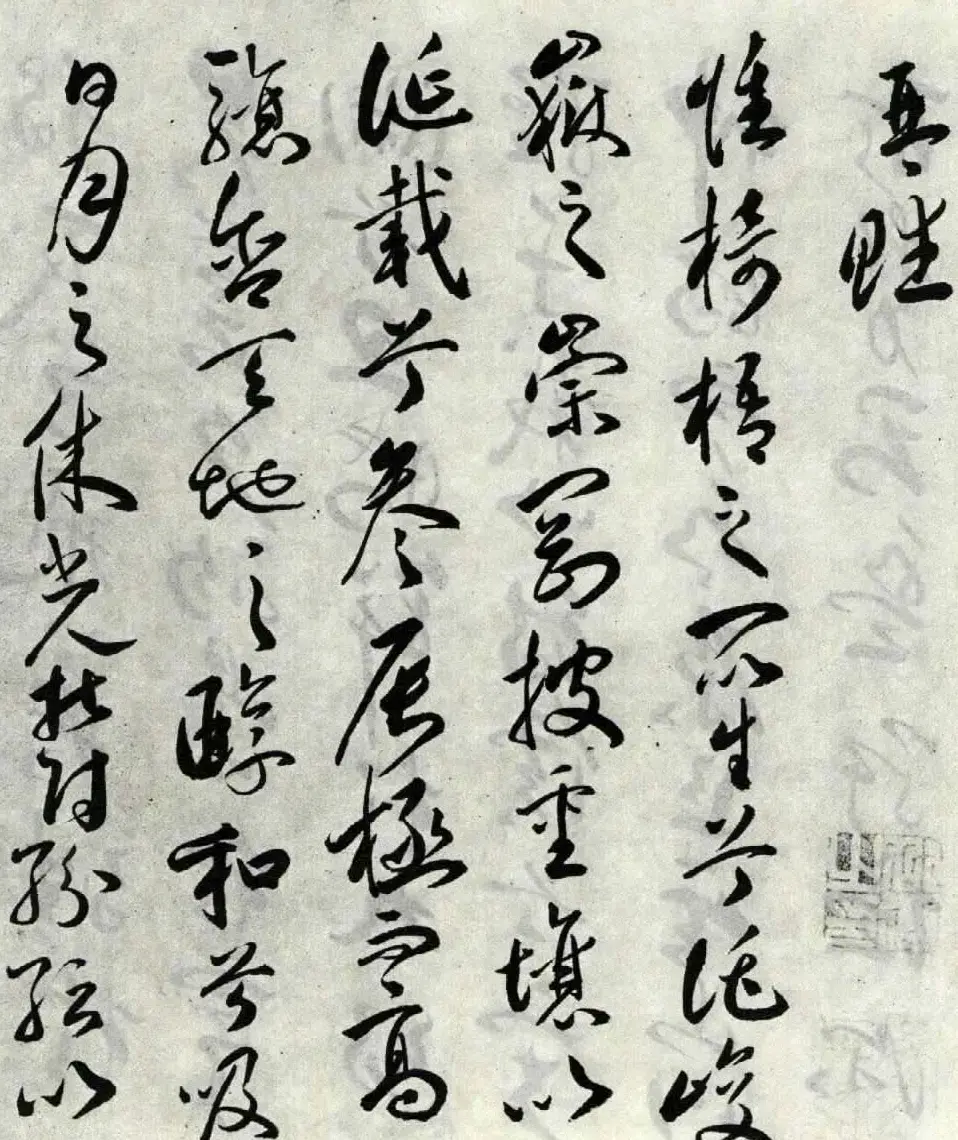 琴賦
惟椅梧之所生兮託峻
嶽之崇岡披重壤以
誕載兮參辰極而高
驤含天地之醇和兮吸
日月之休光鬱紛紜以